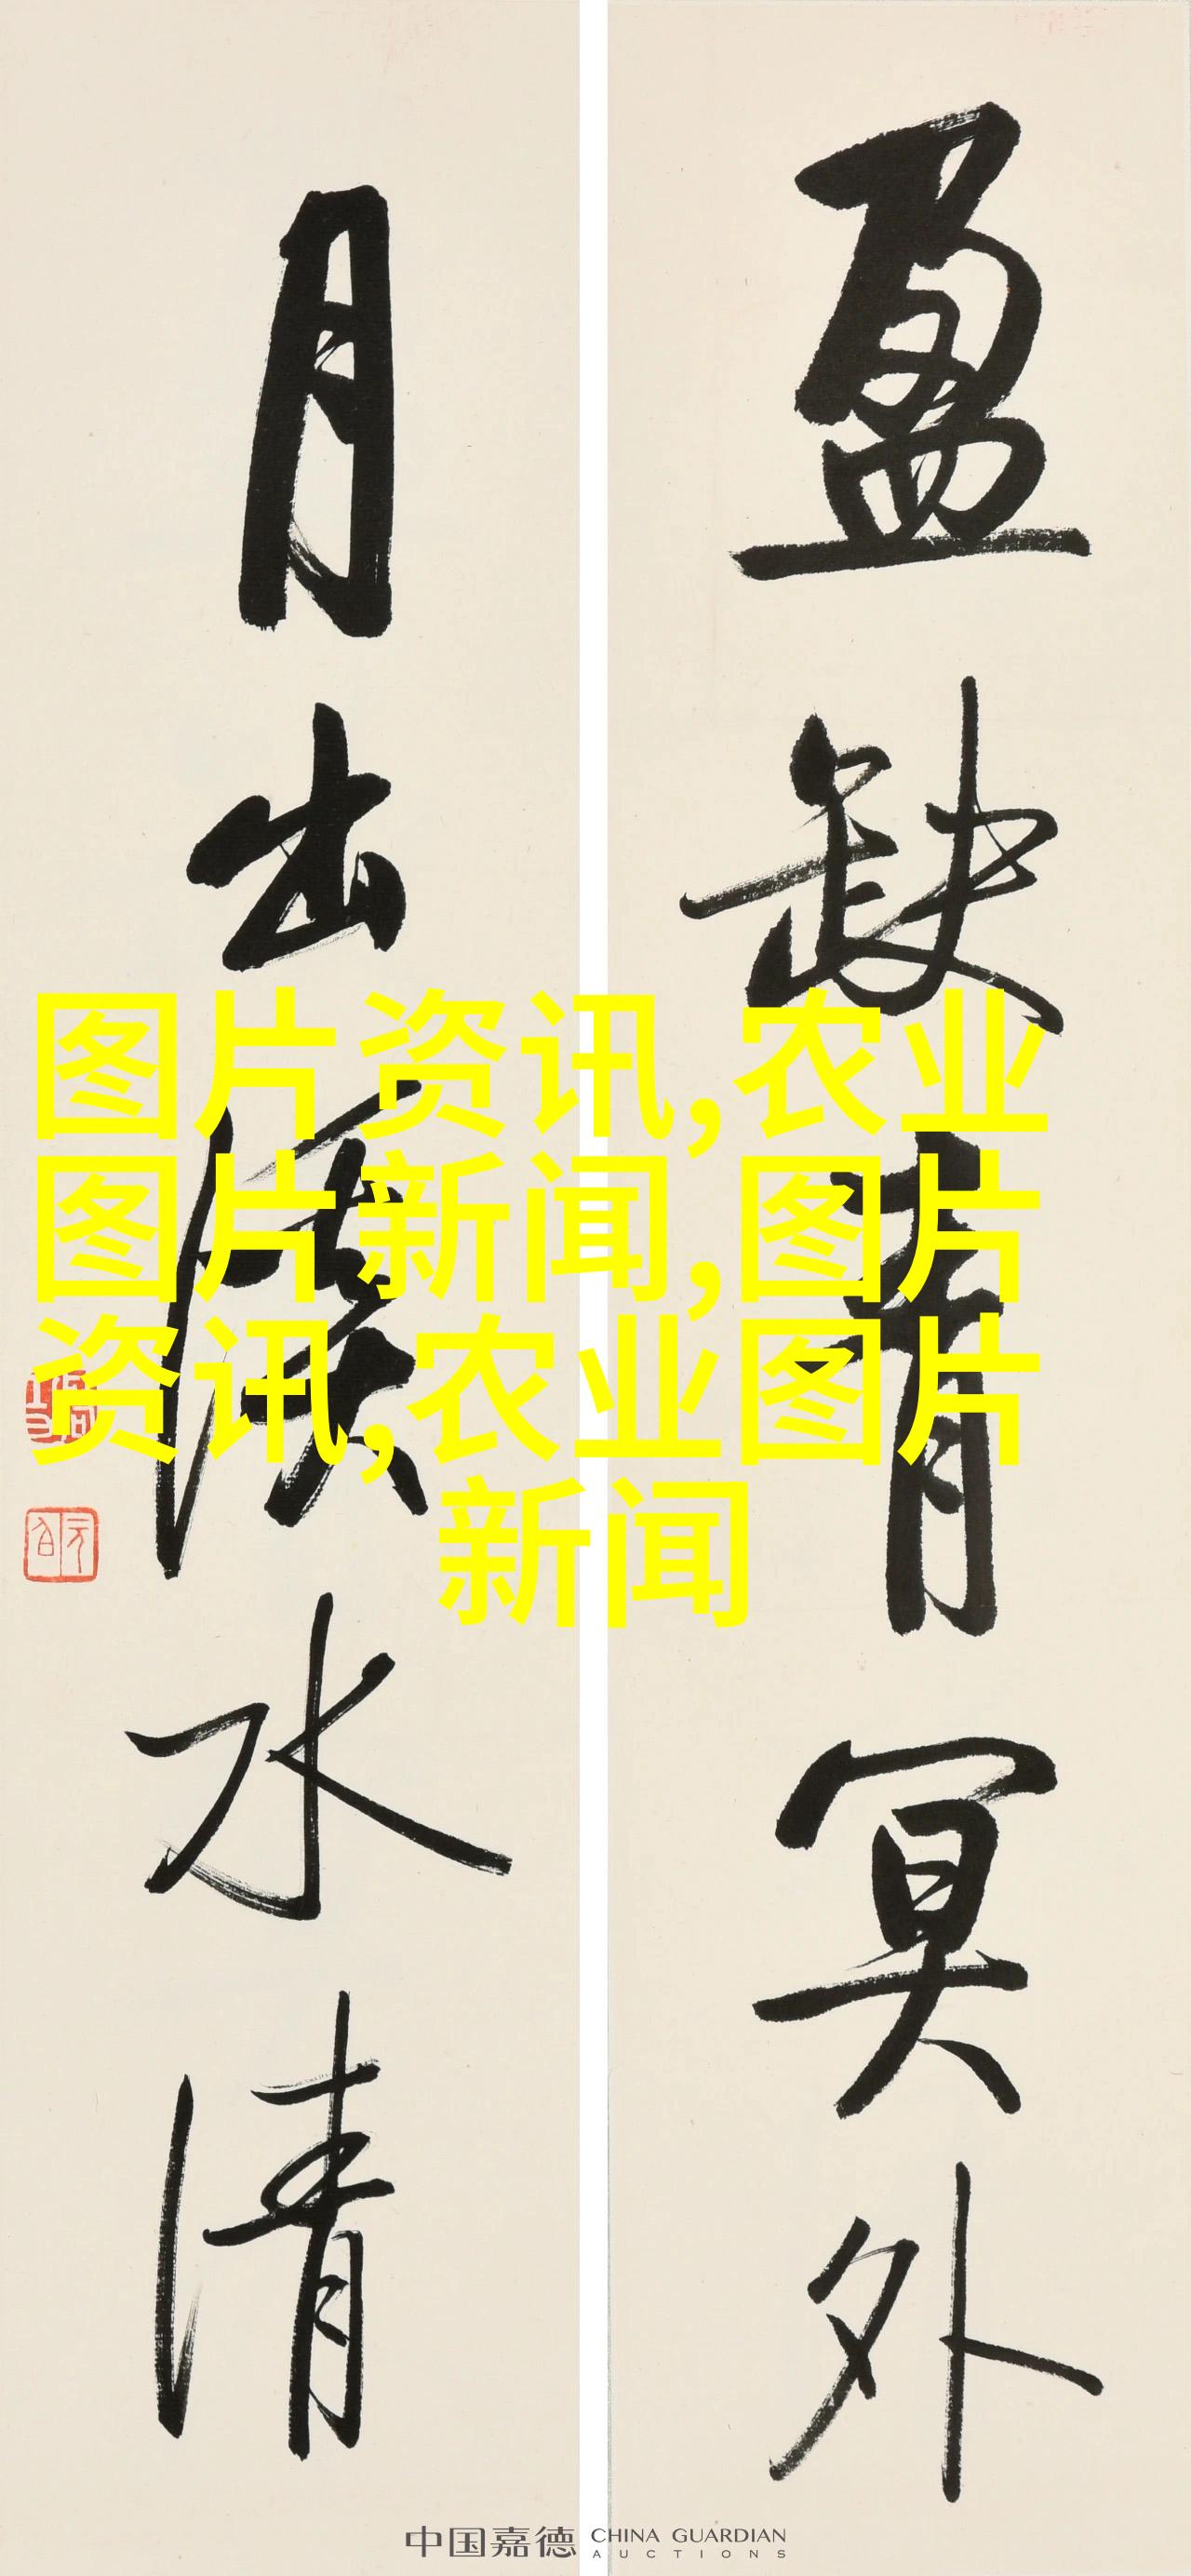 盈缺青冥外
月出水清
图片资讯,农业
图片新闻,图片
资讯,农业图片
新闻
中国嘉德 CHINA GUARDIAN
AUCTIONS